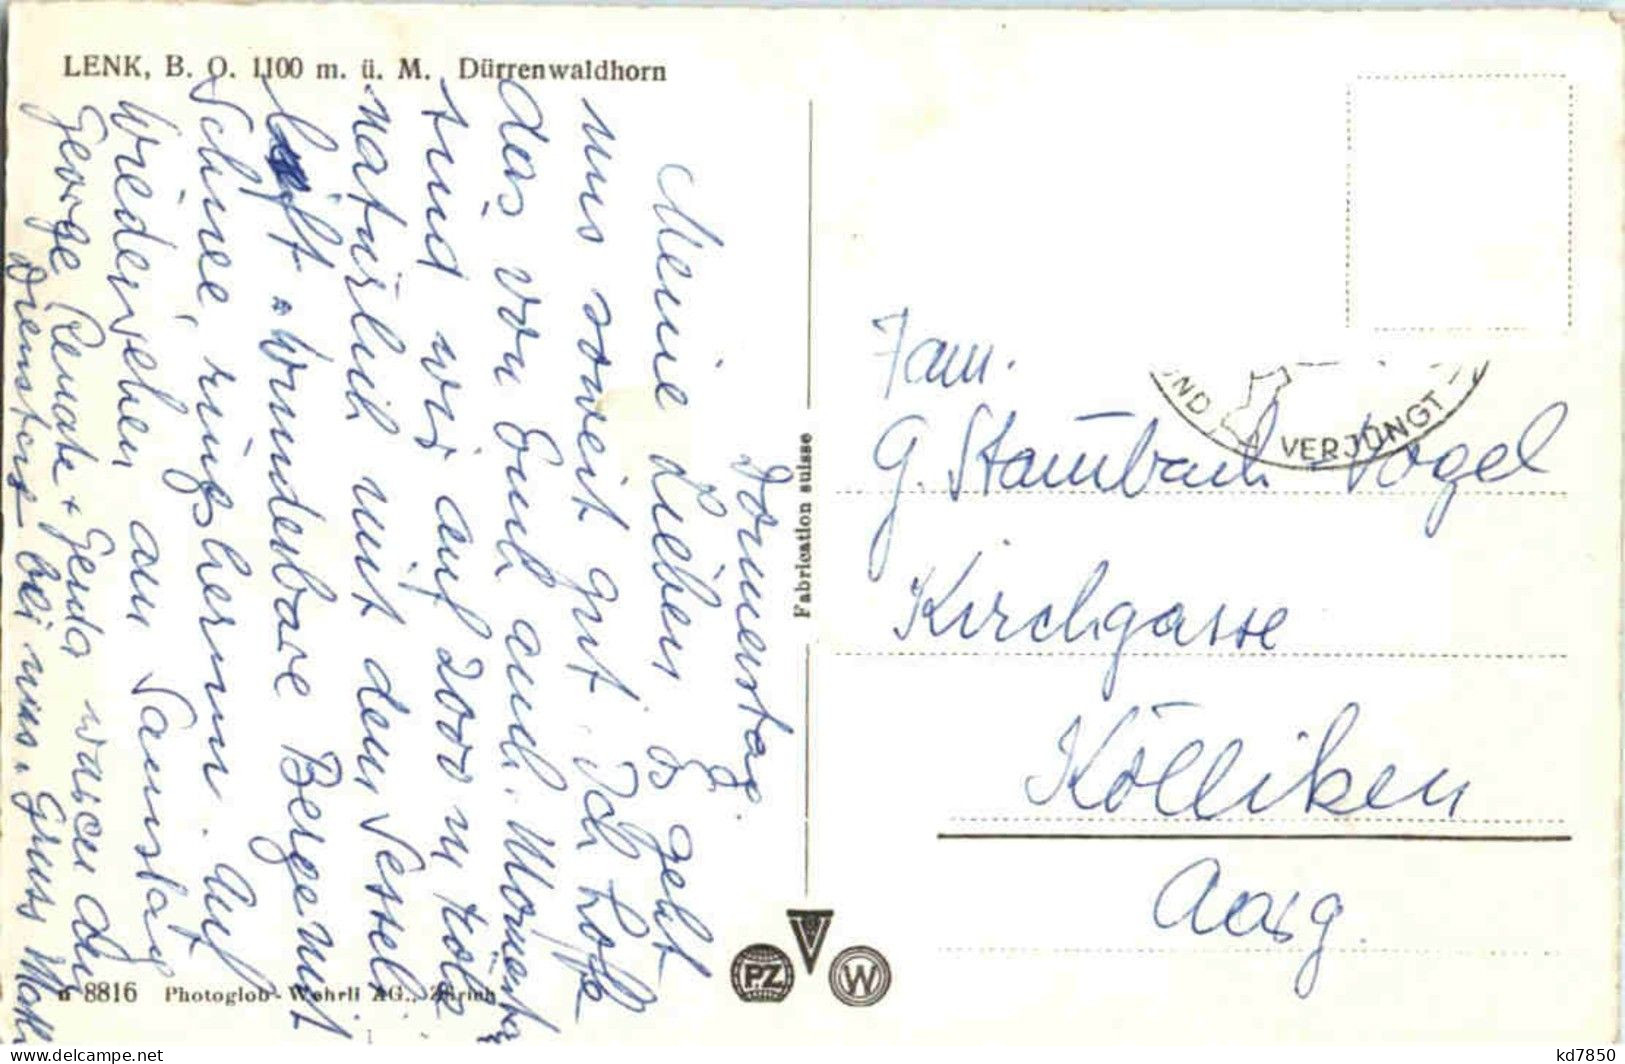 LENK, B. O. 1100 m. ü. M. Dürrenwaldhorn
Donnerstag.
Meine Lieben Es geht
uns soweit gut. Ich hoffe
das von Euch auch. Momentan
sind wir auf 2000 m Höhe
natürlich mit dem Sessel
lift. Wunderbare Berge mit
Schnee, ringsherum. Auf
Wiedersehen am Samstag
George Renate + waren am
Dienstag bei uns. Gruss
Fabrication suisse
8816 Photoglob-Wehrli AG., Zürich
PZ
W
UND VERJÜNGT
Fam.
G. Stambach Vogel
Kirchgasse
Kölliken
Aarg.
www.delcampe.net
kd7850